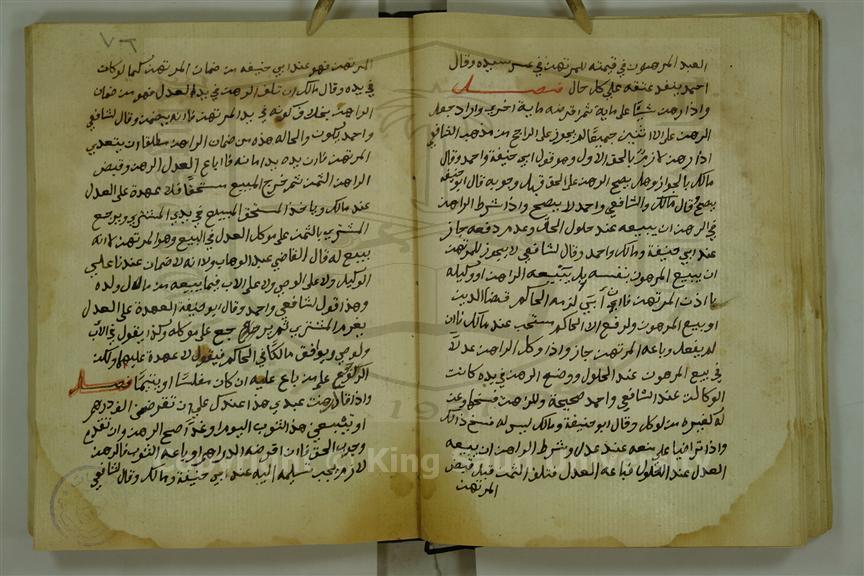 العبد المرهون في قيمته للمرتهن في عسر سيده وقال
احمد ينفذ عتقه على كل حال فصل
واذا رهن شيئا على ماية ثم اقرضه ماية اخري واراد جعل
الرهن على الاثنين جميعا لم يجوز على الراجح من مذهب الشافعي
اذا رهن لازم بالحق الاول وهو قول ابي حنيفة واحمد وقال
مالك بالجواز وهل يصح الرهن على الحق قبل وجوبه قال ابو حنيفه
يصح وقال مالك والشافعي واحمد لا يصح واذا شرط الراهن
في الرهن ان يبيعه عند حلول الحق وعدم دفعه جاز
عند ابي حنيفة ومالك واحمد وقال الشافعي لا يجوز للمرتهن
ان يبيع المرهون بنفسه بل يبيعه الراهن او وكيله
باذن المرتهن فان ابى الزمه الحاكم قضا الدين
او بيع المرهون والرفع الا الحاكم مستحب عند مالك فان
لم يفعل وباعه المرتهن جاز واذا وكل الراهن عدلا
في بيع المرهون عند الحلول ووضع الرهن في يده كانت
الوكالت عند الشافعي واحمد صحيحة وللراهن فسخها وعزله
كغيره من الوكل وقال ابو حنيفة ومالك ليس له فسخ ذالك
واذا تراضيا على وضعه عند عدل وشرط الراهن ان يبيعه
العدل عند الحلول فباعه العدل فتلف الثمن قبل قبض
المرتهن
٧٦
المرتهن فهو عند ابي حنيفه من ضمان المرتهن كما لو كان
في يده وقال مالك ان تلف الرهن في يد العدل فهو من ضمان
الراهن بخلاف كونه في يد المرتهن فانه يضمن وقال الشافعي
واحمد يكون والحاله هذه من ضمان الراهن مطلقا ان يتعدي
المرتهن فان يده يد امانه فاذا باع العدل الرهن وقبض
الراهن الثمن ثم خرج المبيع مستحقا فلا عهدة على العدل
عند مالك وياخذ المستحق المبيع في يدي المشتري ويرجع
المشتري بالثمن على موكل العدل في البيع وهو المرتهن لانه
بيع له قال القاضي عبد الوهاب ولانه لا ضمان عندنا على
الوكيل ولا على الوصي ولا على الاب فيما يبيعه من مال ولده
وهذا قول الشافعي واحمد وقال ابو حنيفة العهدة على العدل
يغرم المشتري ثم يرجع على موكله وكذا يقول في الاب
والوصي ويوافق مالكا في الحاكم فيقول لا عهدة عليه ولكن
الرجوع على من باع عليه ان كان مفلسا او يتيما فصل
واذا قال رهنت عبدي هذا عندك على ان تقرضني الف درهم
او تبيعني هذا الثوب اليوم او غدا صح الرهن وان تقدم
وجوب الحق فان اقرضه الدراهم او باعه الثوب فالرهن
لازم يجب تسليمه اليه عند ابي حنيفة ومالك وقال الشافعي